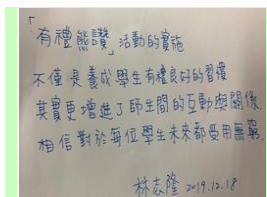 「有禮熊讚」活動的實施
不僅是養成學生有禮良好的習慣
其實更增進了師生間的互動與關係
相信對於每位學生未來都受用無窮
林志隆 2019.12.18